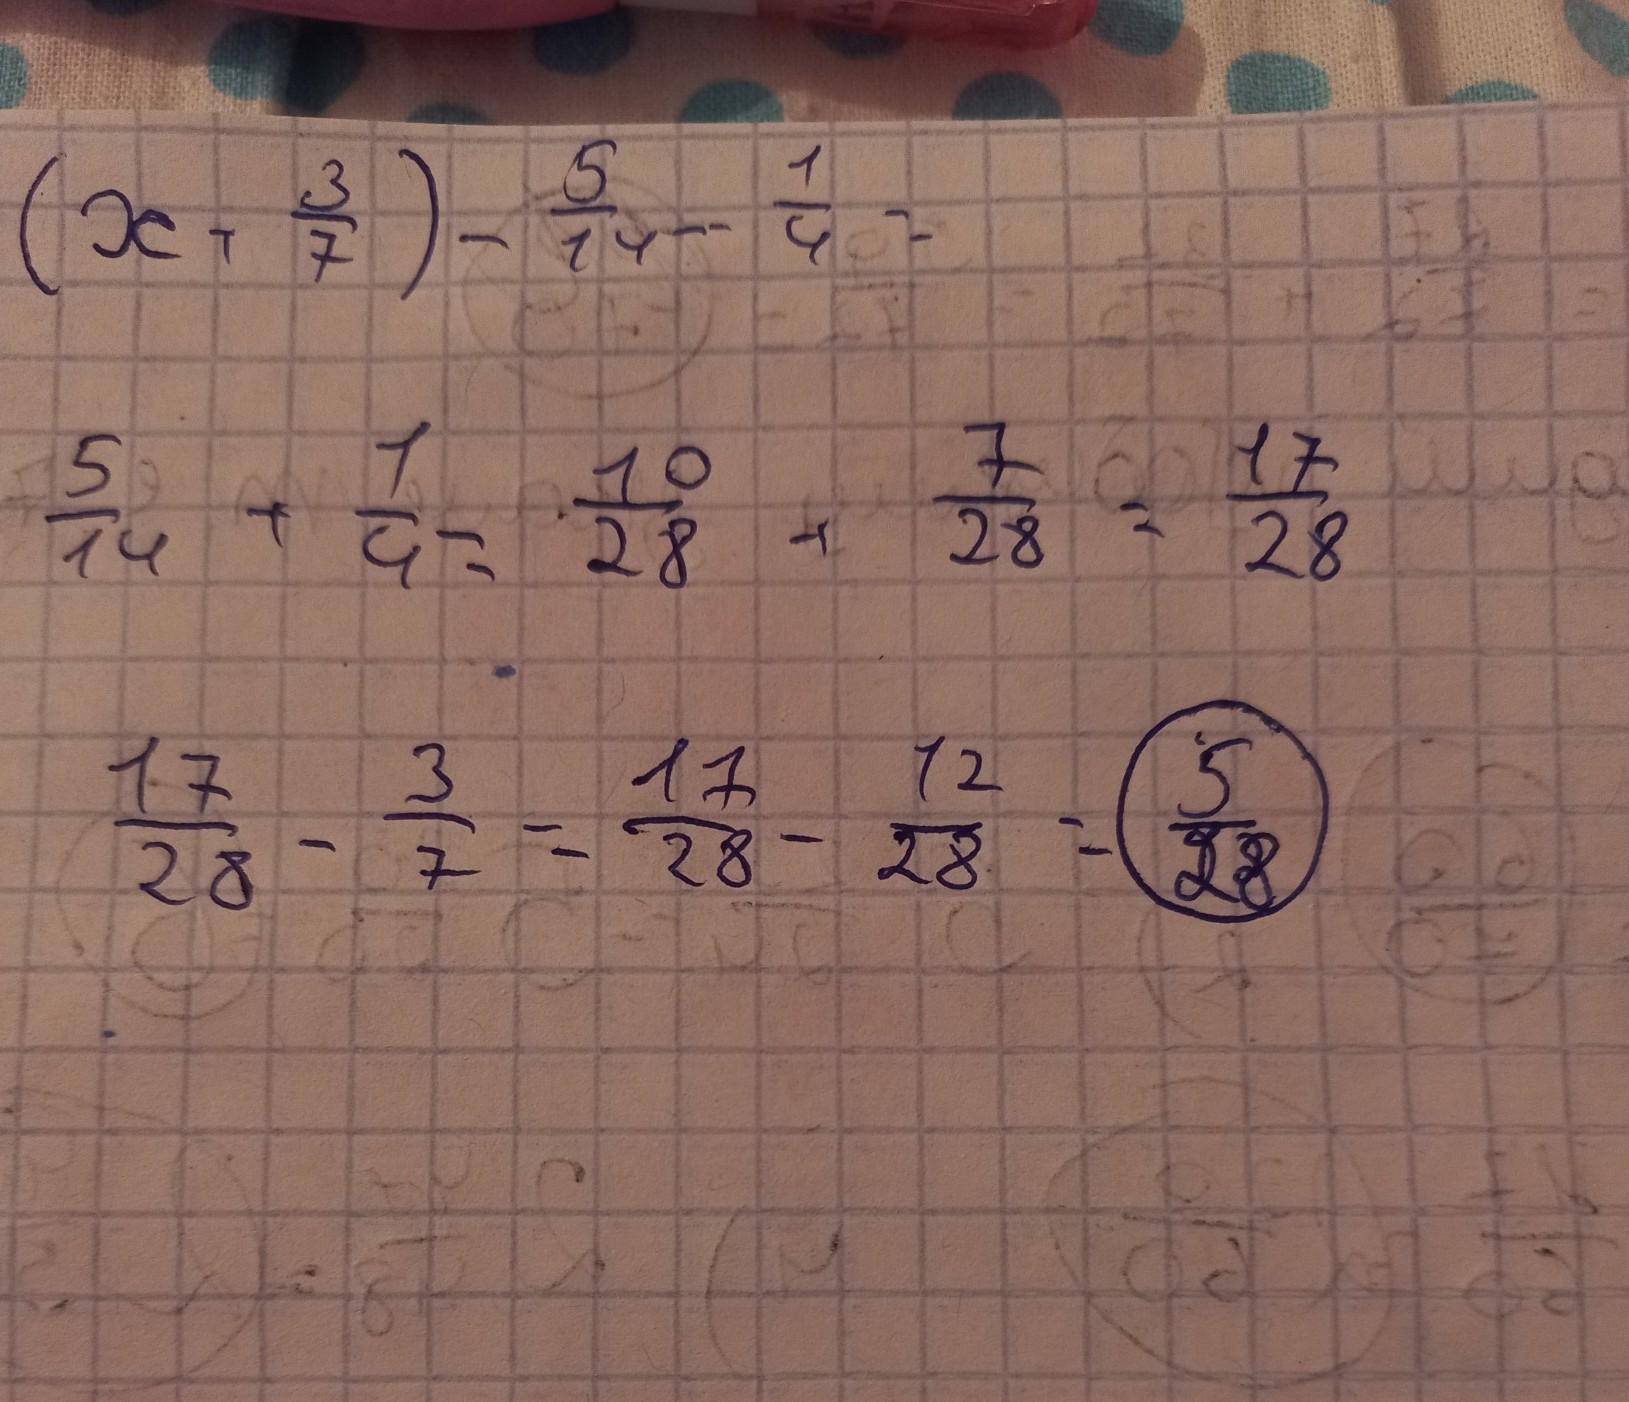 (x + 3/7) - 5/14 - 1/4 =
5/14 + 1/4 = 10/28 + 7/28 = 17/28
17/28 - 3/7 = 17/28 - 12/28 = 5/28